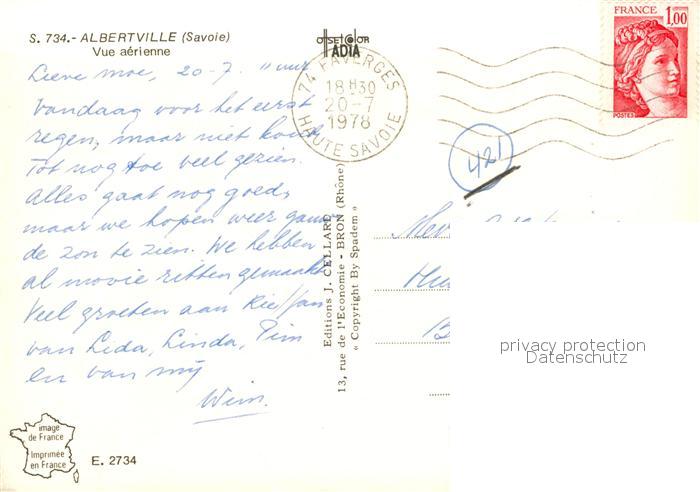 S. 734.- ALBERTVILLE (Savoie)
Vue aérienne
offset color
IADIA
FRANCE 1,00
POSTES
74 FAVERGES
18H30
20-7
1978
HAUTE SAVOIE
421
Lieve moe, 20-7. 11 uur
Vandaag voor het eerst
regen, maar niet koud
Tot nog toe veel gezien.
Alles gaat nog goed,
maar we hopen weer gauw
de zon te zien. We hebben
al mooie ritten gemaakt
Veel groeten aan Rie/Jan
van Leda, Linda, Pim
en van mij
Wim.
Editions J. CELLARD
13, rue de l'Economie - BRON (Rhône)
« Copyright By Spadem »
Mev
B
privacy protection
Datenschutz
image
de France
Imprimée
en France
E. 2734